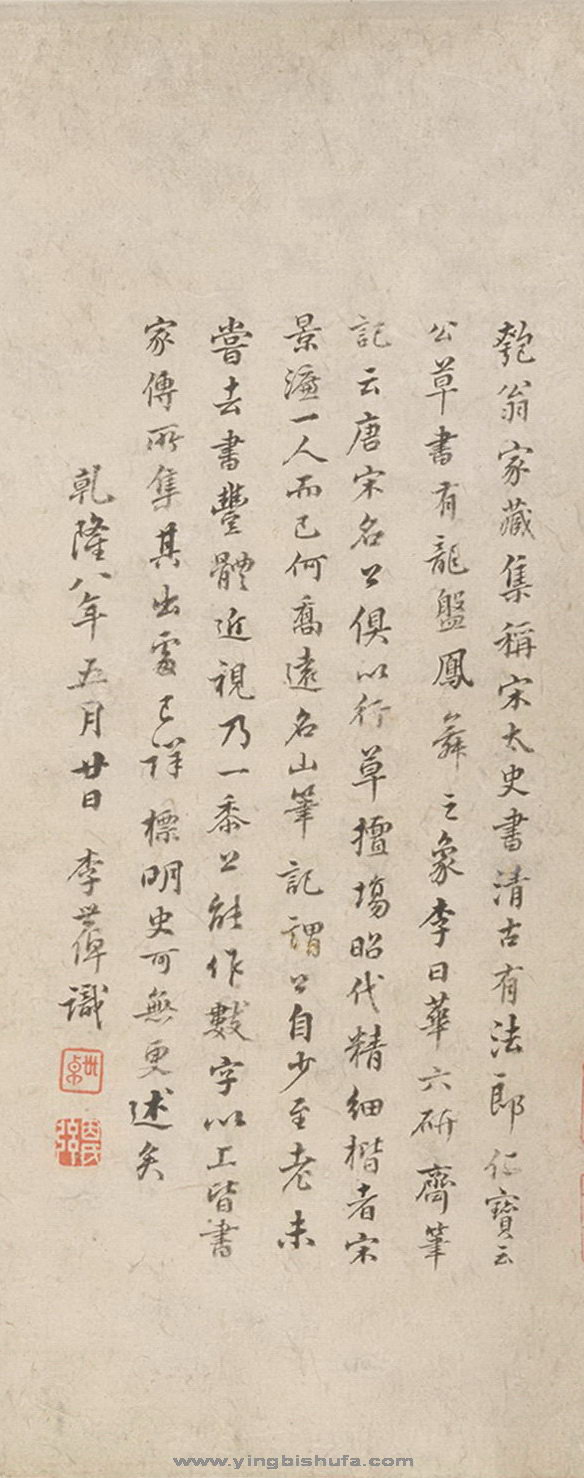 匏翁家藏集稱宋太史書清古有法郎仁寶云
公草書有龍盤鳳舞之象李日華六研齋筆
記云唐宋名公俱以行草擅場昭代精細楷者宋
景濂一人而已何喬遠名山筆記謂公自少至老未
嘗去書豐體近視乃一黍公能作數字以工皆書
家傳所集其出處已詳標明史可無更述矣
乾隆八年五月廿日 李世倬識
世
卓
www.yingbishufa.com